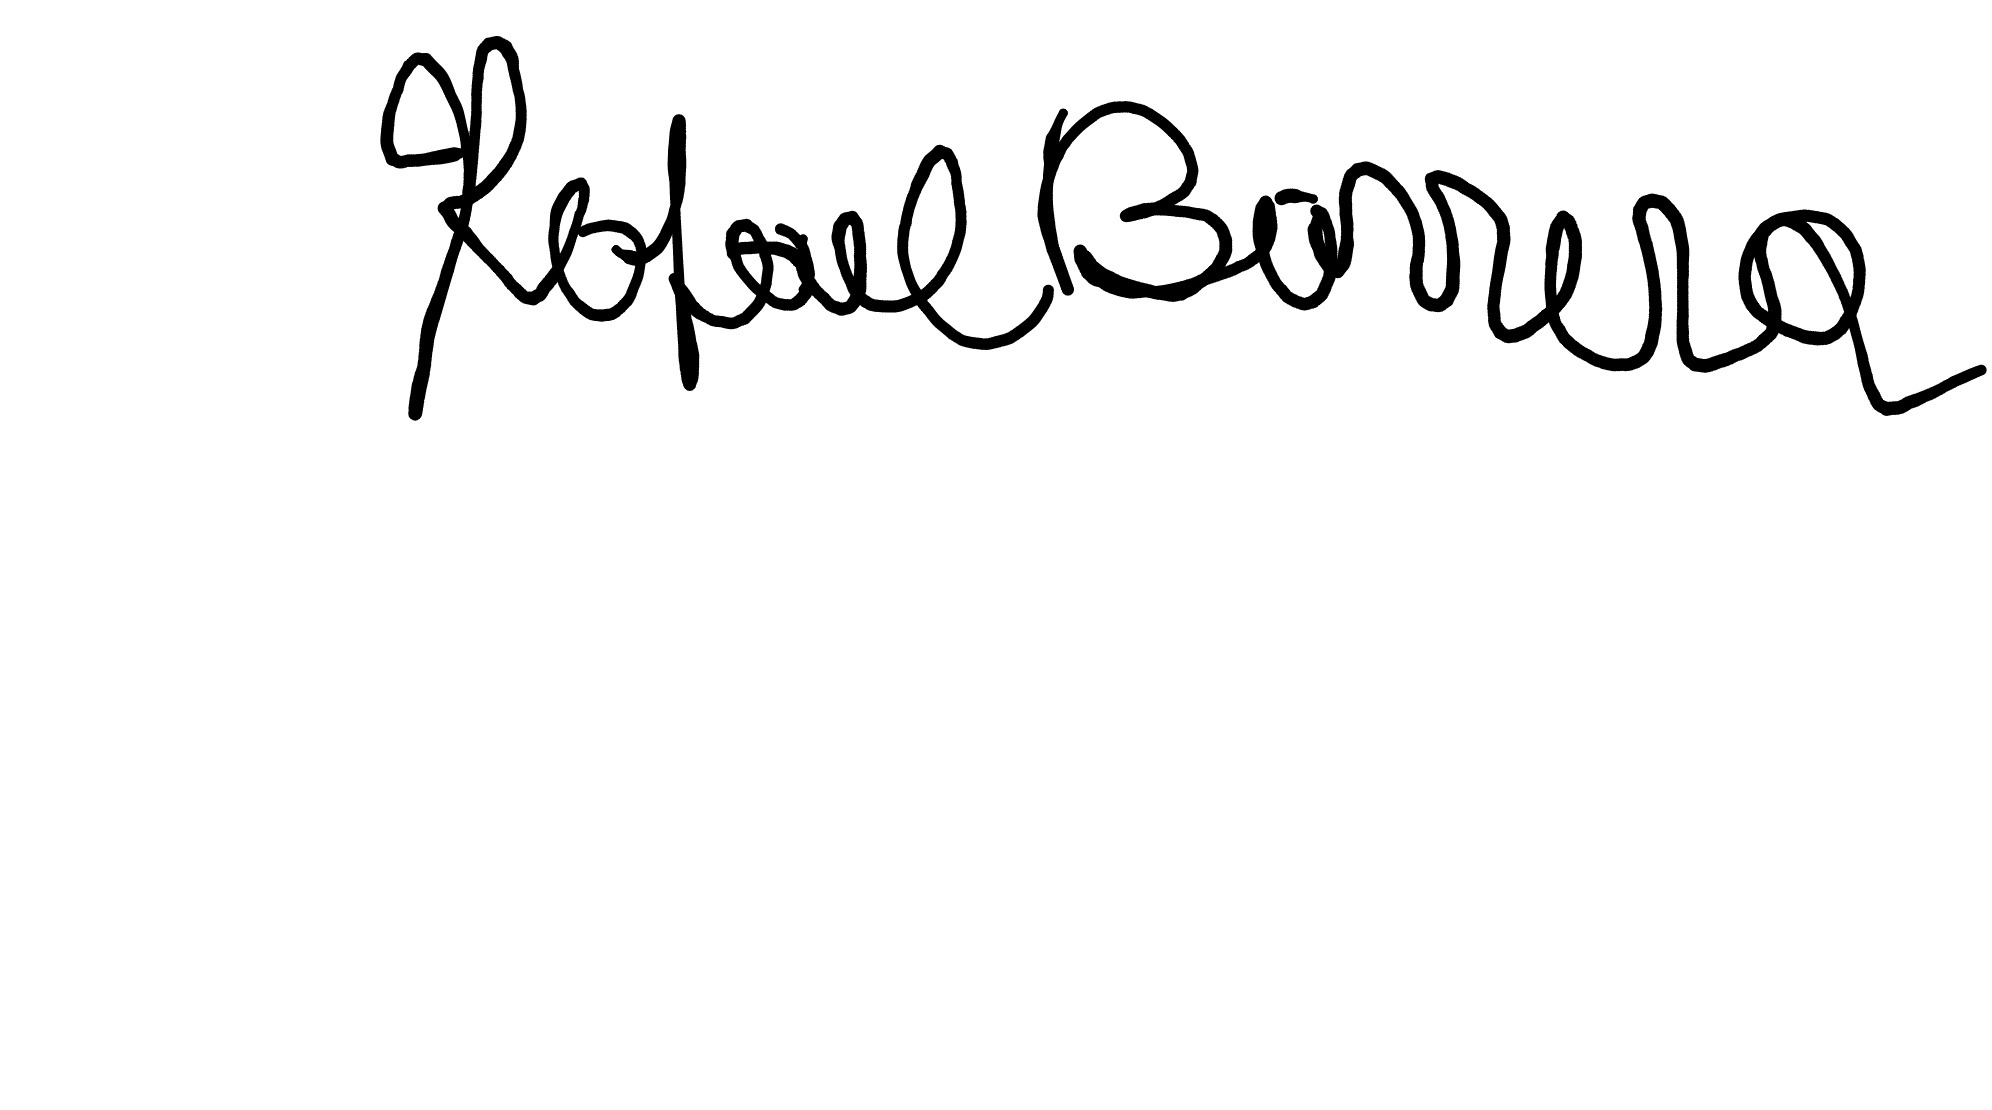 Rafael Barrera